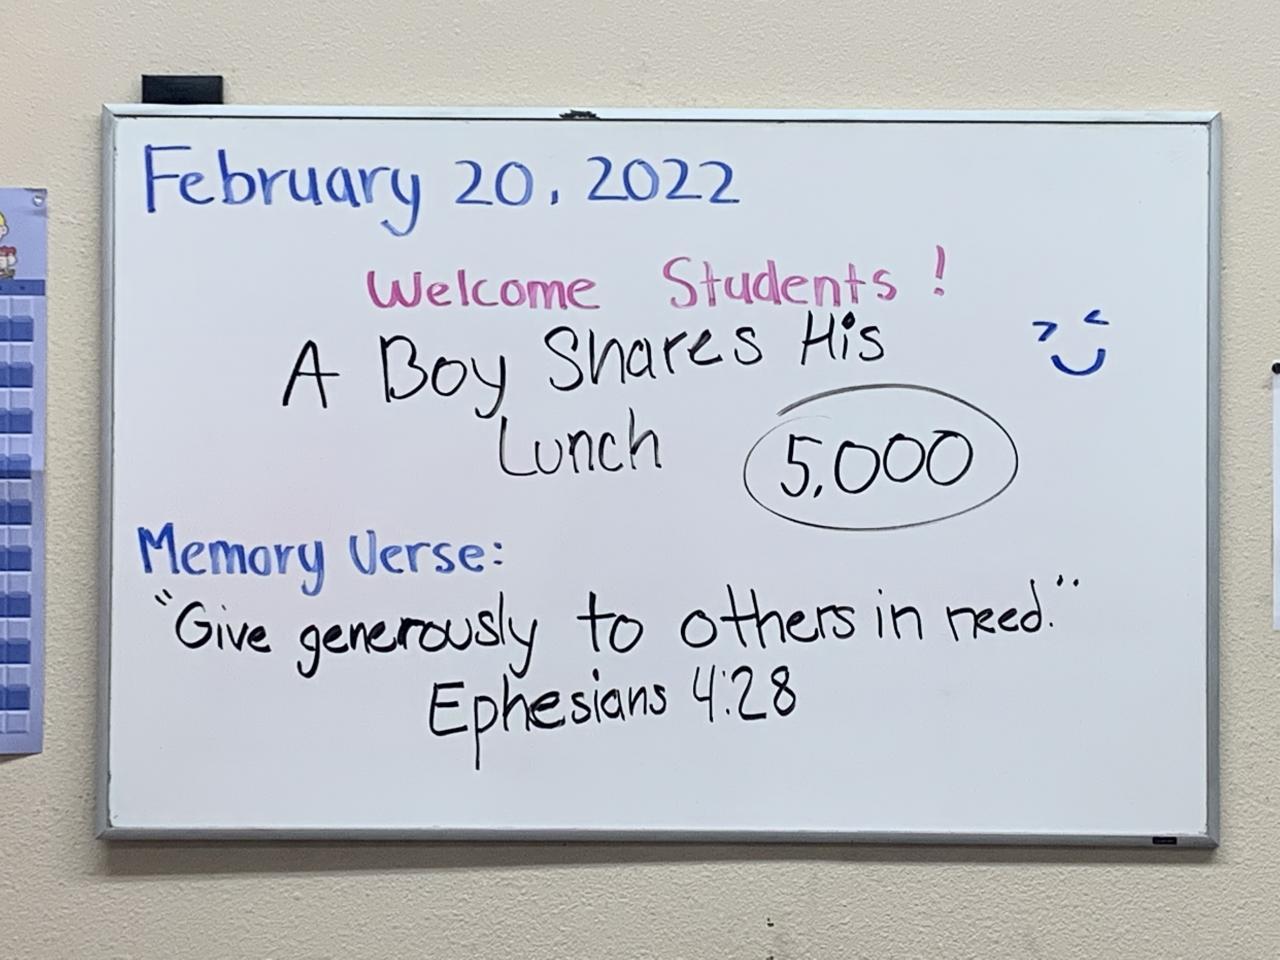 February 20, 2022
Welcome Students!
A Boy Shares His
Lunch 5,000
Memory Verse:
"Give generously to others in need."
Ephesians 4:28